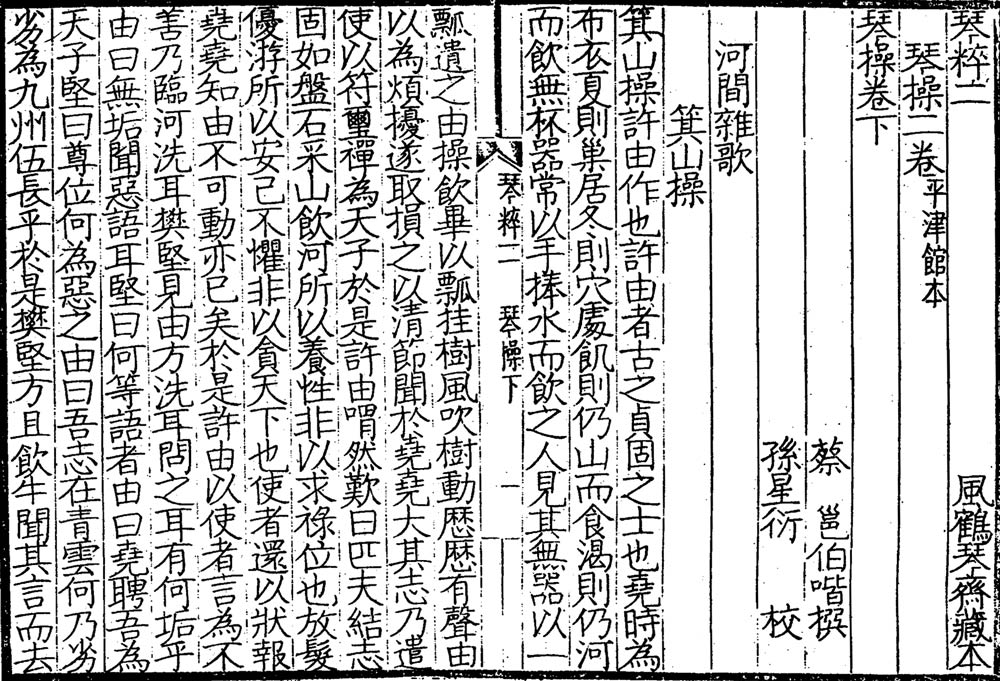 琴粹二 風鶴琴齋藏本
琴操二卷平津館本
琴操卷下
蔡邕伯喈撰
孫星衍 校
河間雜歌
箕山操
箕山操許由作也許由者古之貞固之士也堯時為
布衣夏則巢居冬則穴處飢則仍山而食渴則仍河
而飲無杯器常以手捧水而飲之人見其無器以一
琴粹二 琴操下 一
瓢遺之由操飲畢以瓢挂樹風吹樹動歷歷有聲由
以為煩擾遂取損之以清節聞於堯堯大其志乃遣
使以符璽禪為天子於是許由喟然歎曰匹夫結志
固如盤石采山飲河所以養性非以求祿位也放髮
優游所以安己不懼非以貪天下也使者還以狀報
堯堯知由不可動亦已矣於是許由以使者言為不
善乃臨河洗耳樊堅見由方洗耳問之耳有何垢乎
由曰無垢聞惡語耳堅曰何等語者由曰堯聘吾為
天子堅曰尊位何為惡之由曰吾志在青雲何乃劣
劣為九州伍長乎於是樊堅方且飲牛聞其言而去